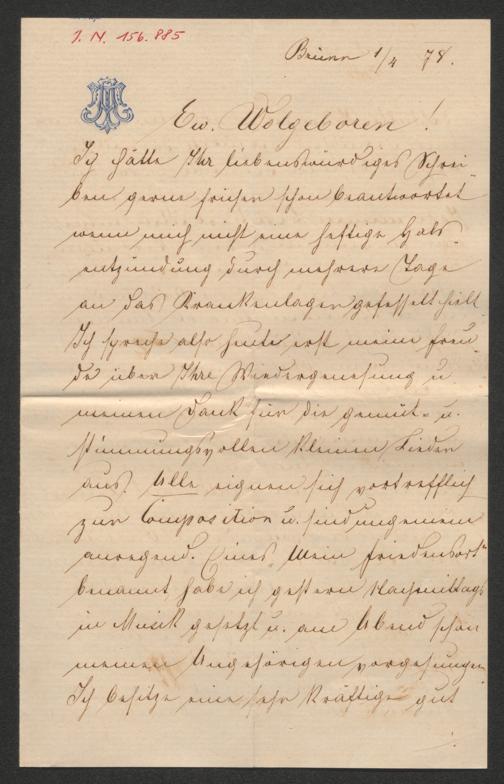 J. N. 156.885
Brünn 1/4 78.
Ew. Wolgeboren!
Ich hätte Ihr liebenswürdiges Schrei-
ben gerne früher schon beantwortet
wenn mich nicht eine heftige Hals-
entzündung durch mehrere Tage
an das Krankenlager gefesselt hielt.
Ich spreche also heute erst meine Freu-
de über Ihre Wiedergenesung u.
meinen Dank für die gemüt- u.
stimmungsvollen kleinen Lieder
aus. Alle eignen sich vortrefflich
zur Composition u. sind ungemein
anregend. Eines „Mein Friedensort“
benannt, habe ich gestern Nachmittags
in Musik gesetzt u. am Abend schon
meinen Angehörigen vorgesungen.
Ich besitze eine sehr kräftige gut